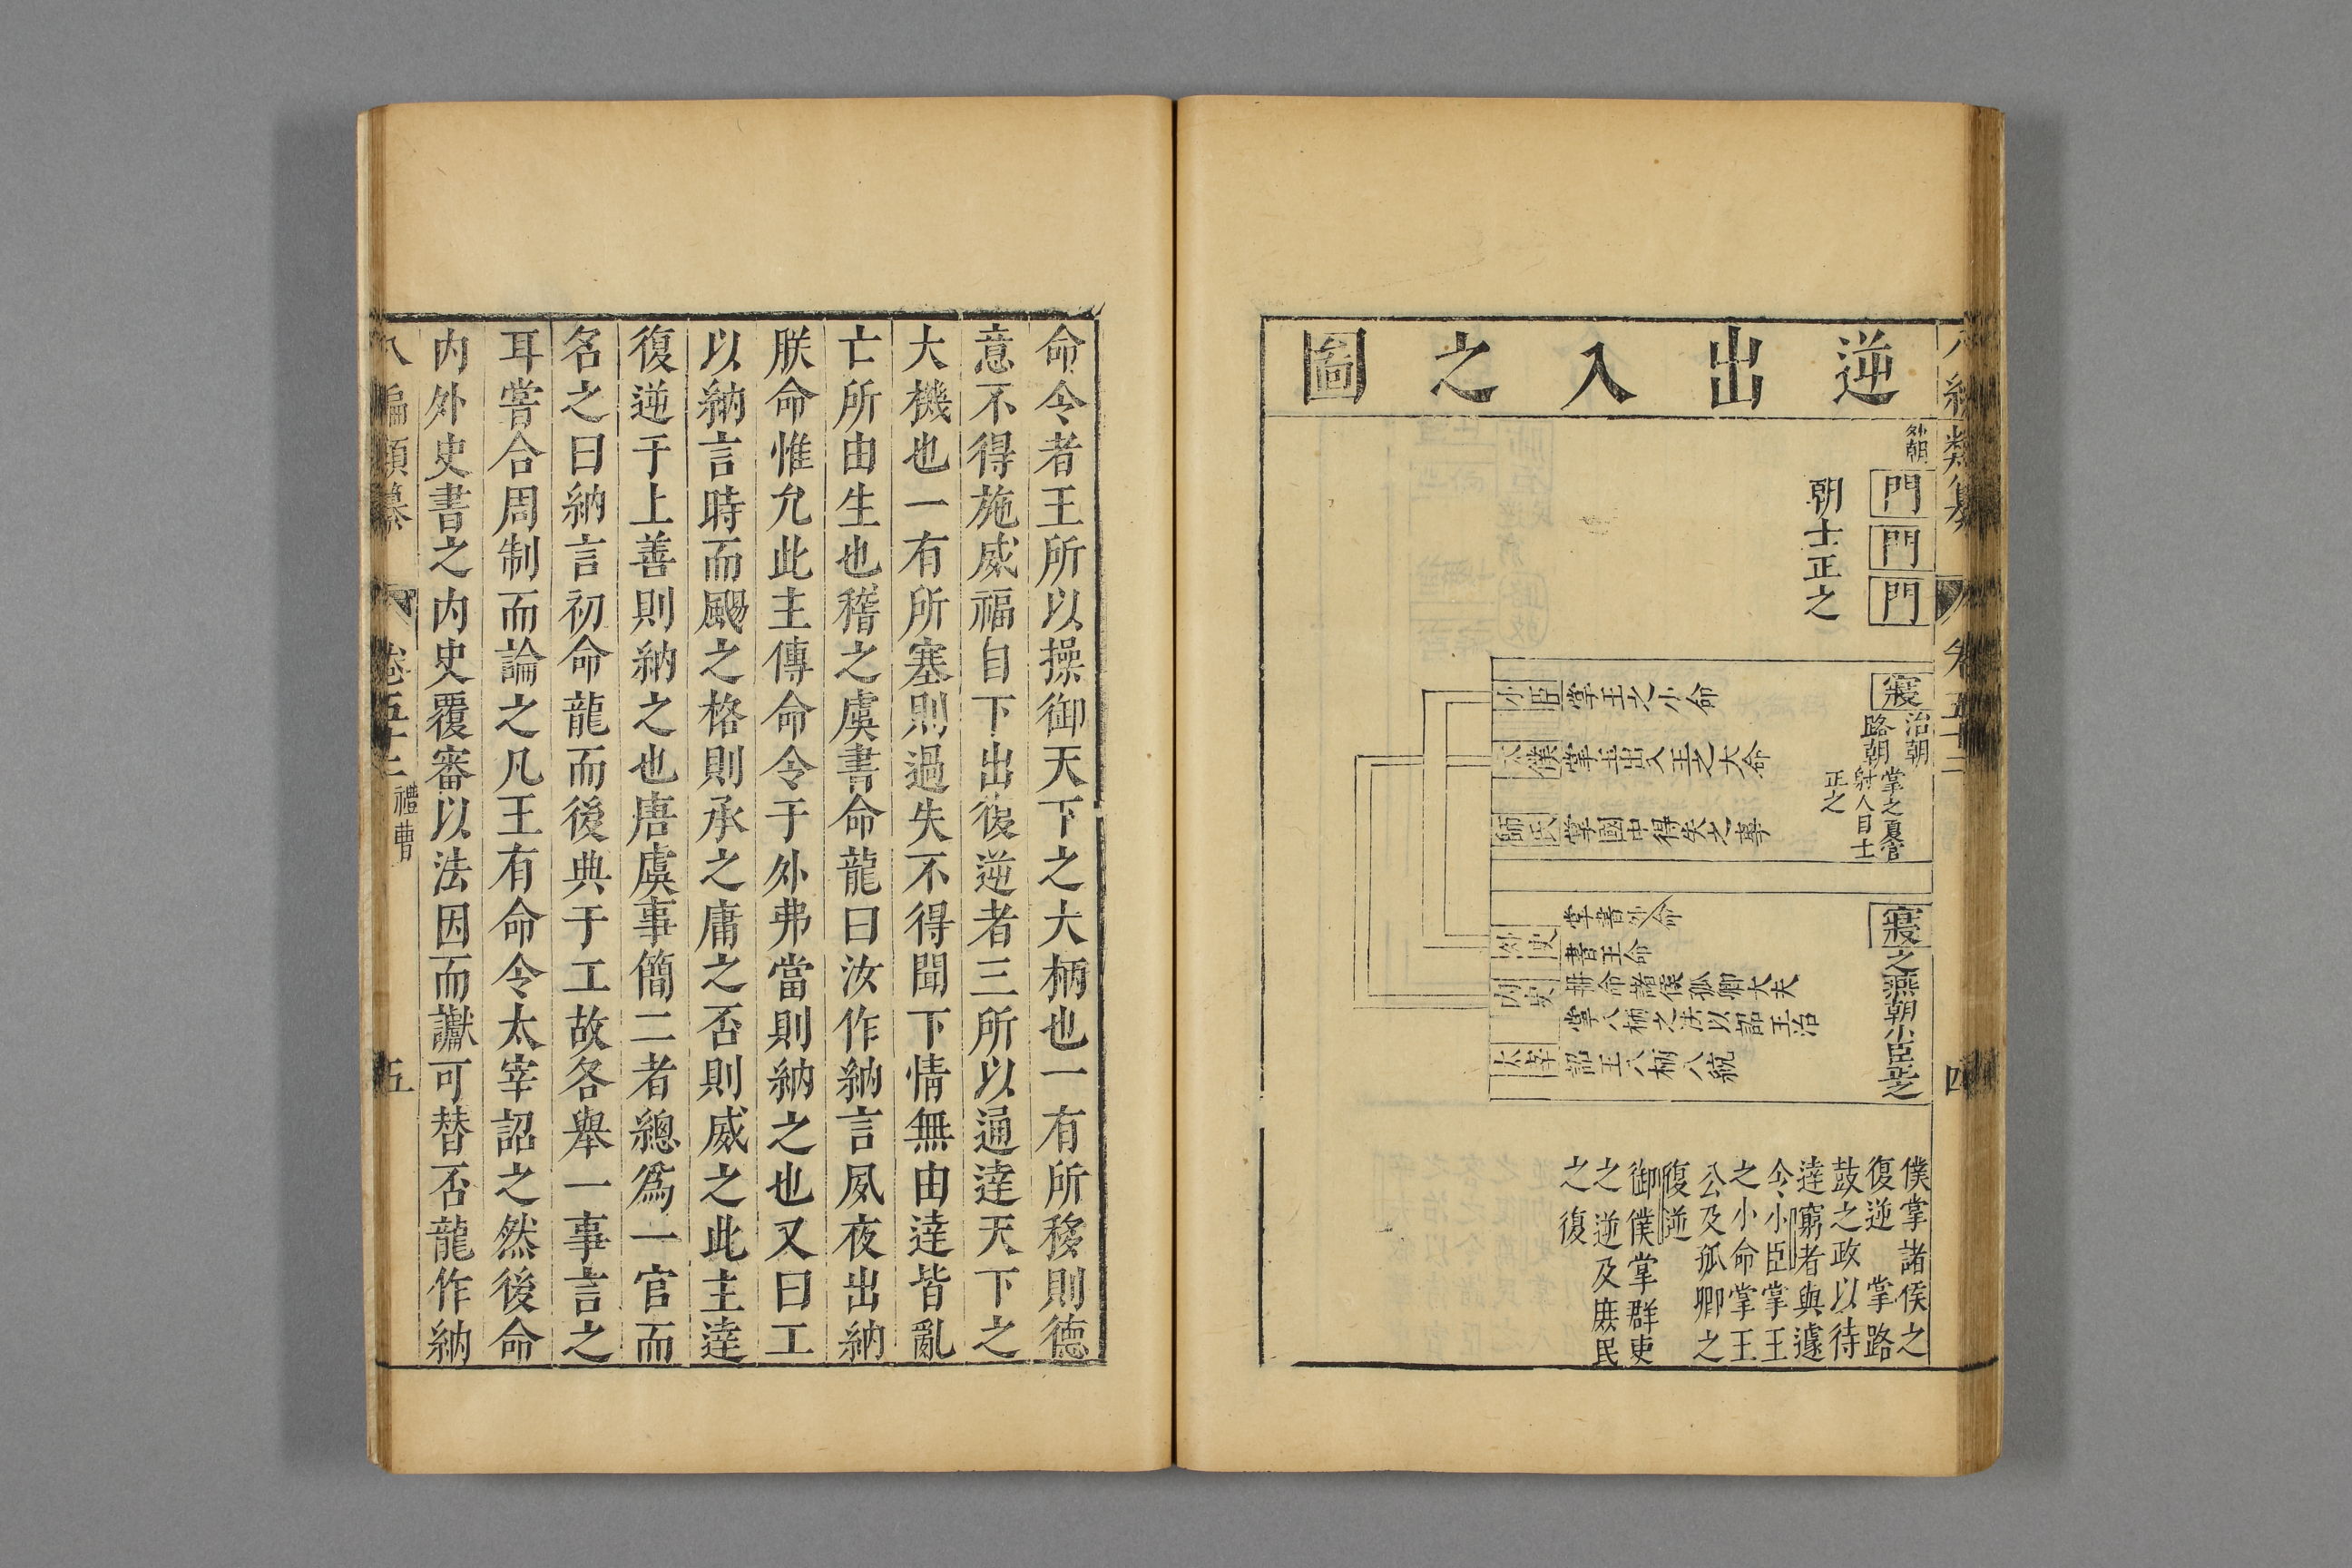 逆出入之圖
外朝
門
門
門
朝士正之
寢
治朝
路朝
掌之夏官
射人目士
正之
小臣掌王之小命
太僕掌出入王之大命
師氏掌國中得失之事
寢之燕朝小臣正之
掌書小命
外史書王命
內史册命諸侯孤卿大夫
掌八柄之法以詔王治
太宰詔王八柄八統
僕掌諸侯之
復逆 掌路
鼓之政以待
達窮者與遽
令小臣掌王
之小命掌王
公及孤卿之
復逆
御僕掌群吏
之逆及庶民
之復
類纂 卷五十二 四
命令者王所以操御天下之大柄也一有所移則德
意不得施威福自下出復逆者三所以通達天下之
大機也一有所塞則過失不得聞下情無由達皆亂
亡所由生也稽之虞書命龍曰汝作納言夙夜出納
朕命惟允此主傳命令于外弗當則納之也又曰工
以納言時而颺之格則承之庸之否則威之此主達
復逆于上善則納之也唐虞事簡二者總爲一官而
名之曰納言初命龍而後典于工故各舉一事言之
耳嘗合周制而論之凡王有命令太宰詔之然後命
内外史書之内史覆審以法因而讞可替否龍作納
八編類纂 卷五十二 禮曹 五